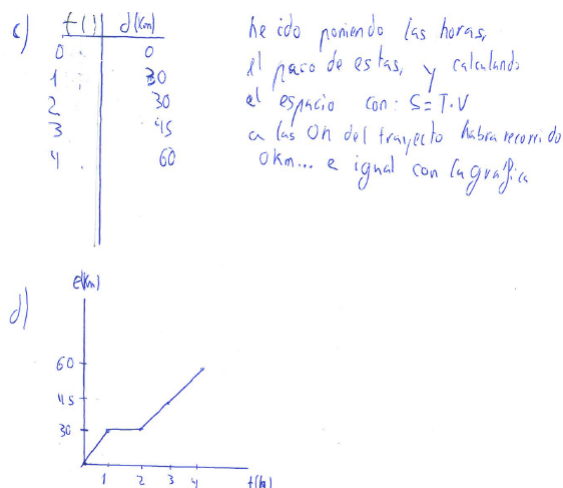 c) t() d(Km)
0 0
1 30
2 30
3 45
4 60
he ido poniendo las horas,
el paso de estas, y calculando
el espacio con: S=T·V
a las 0h del trayecto habra recorrido
0km... e igual con la gráfica
d) e(Km)
60
45
30
1 2 3 4 t(h)